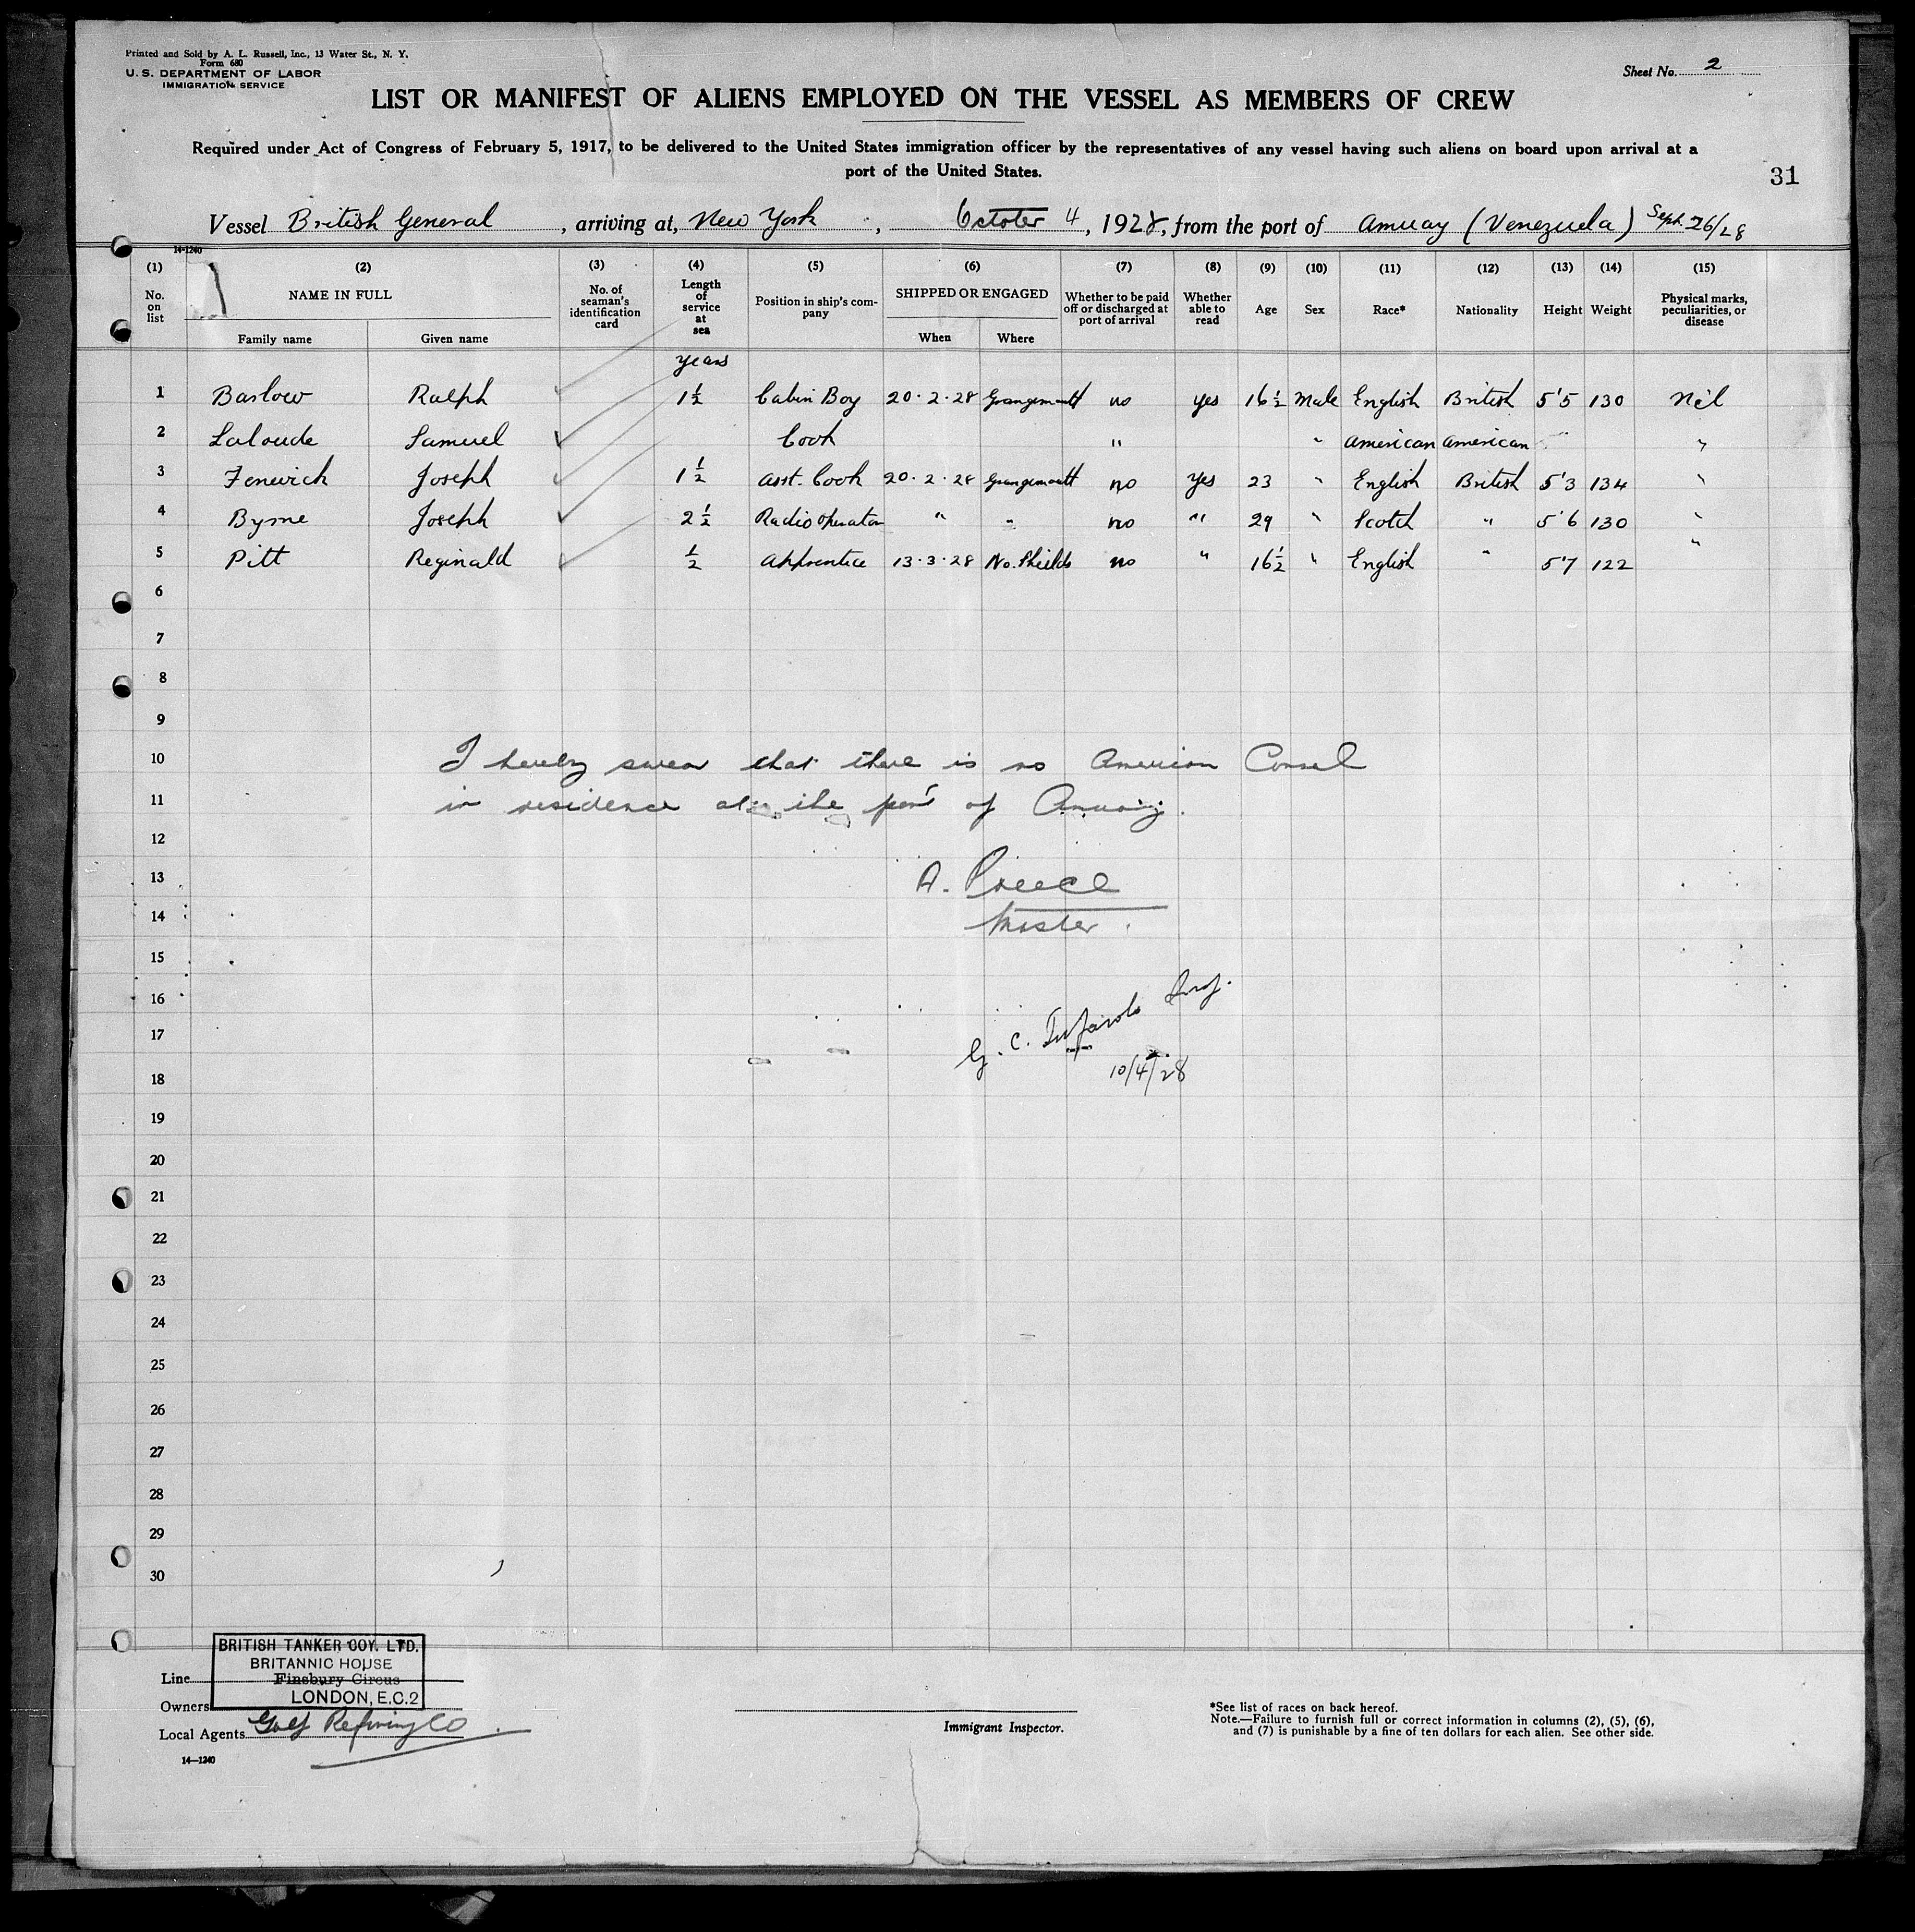 Printed and Sold by A. L. Russell, Inc., 13 Water St., N. Y.
Form 680
U. S. DEPARTMENT OF LABOR
IMMIGRATION SERVICE
Sheet No. 2
LIST OR MANIFEST OF ALIENS EMPLOYED ON THE VESSEL AS MEMBERS OF CREW
Required under Act of Congress of February 5, 1917, to be delivered to the United States immigration officer by the representatives of any vessel having such aliens on board upon arrival at a
port of the United States.
31
Vessel British General, arriving at, New York, October 4, 1928, from the port of Amuay (Venezuela) Sept. 26/28
14-1240
(1) (2) (3) (4) (5) (6) (7) (8) (9) (10) (11) (12) (13) (14) (15)
No. on list NAME IN FULL Family name Given name No. of seaman's identification card Length of service at sea Position in ship's company SHIPPED OR ENGAGED When Where Whether to be paid off or discharged at port of arrival Whether able to read Age Sex Race* Nationality Height Weight Physical marks, peculiarities, or disease
years
1 Barlow Ralph 1½ Cabin Boy 20.2.28 Grangemouth no yes 16½ Male English British 5'5 130 Nil
2 Laloude Samuel Cook " " American American "
3 Fenwick Joseph 1½ Asst. Cook 20.2.28 Grangemouth no yes 23 " English British 5'3 134 "
4 Byrne Joseph 2½ Radio Operator " " no " 29 " Scotch " 5'6 130 "
5 Pitt Reginald ½ Apprentice 13.3.28 No. Shields no " 16½ " English " 5'7 122 "
6
7
8
9
10 I hereby swear that there is no American Consul
11 in residence at the port of Amuay.
12
13 A. Preece
14 Master.
15
16
17 G. C.
18 10/4/28
19
20
21
22
23
24
25
26
27
28
29
30
BRITISH TANKER COY. LTD.
BRITANNIC HOUSE
Finsbury Circus
LONDON, E.C.2
Line
Owners
Local Agents Gulf Refining Co.
14—1240
Immigrant Inspector.
*See list of races on back hereof.
Note.—Failure to furnish full or correct information in columns (2), (5), (6),
and (7) is punishable by a fine of ten dollars for each alien. See other side.